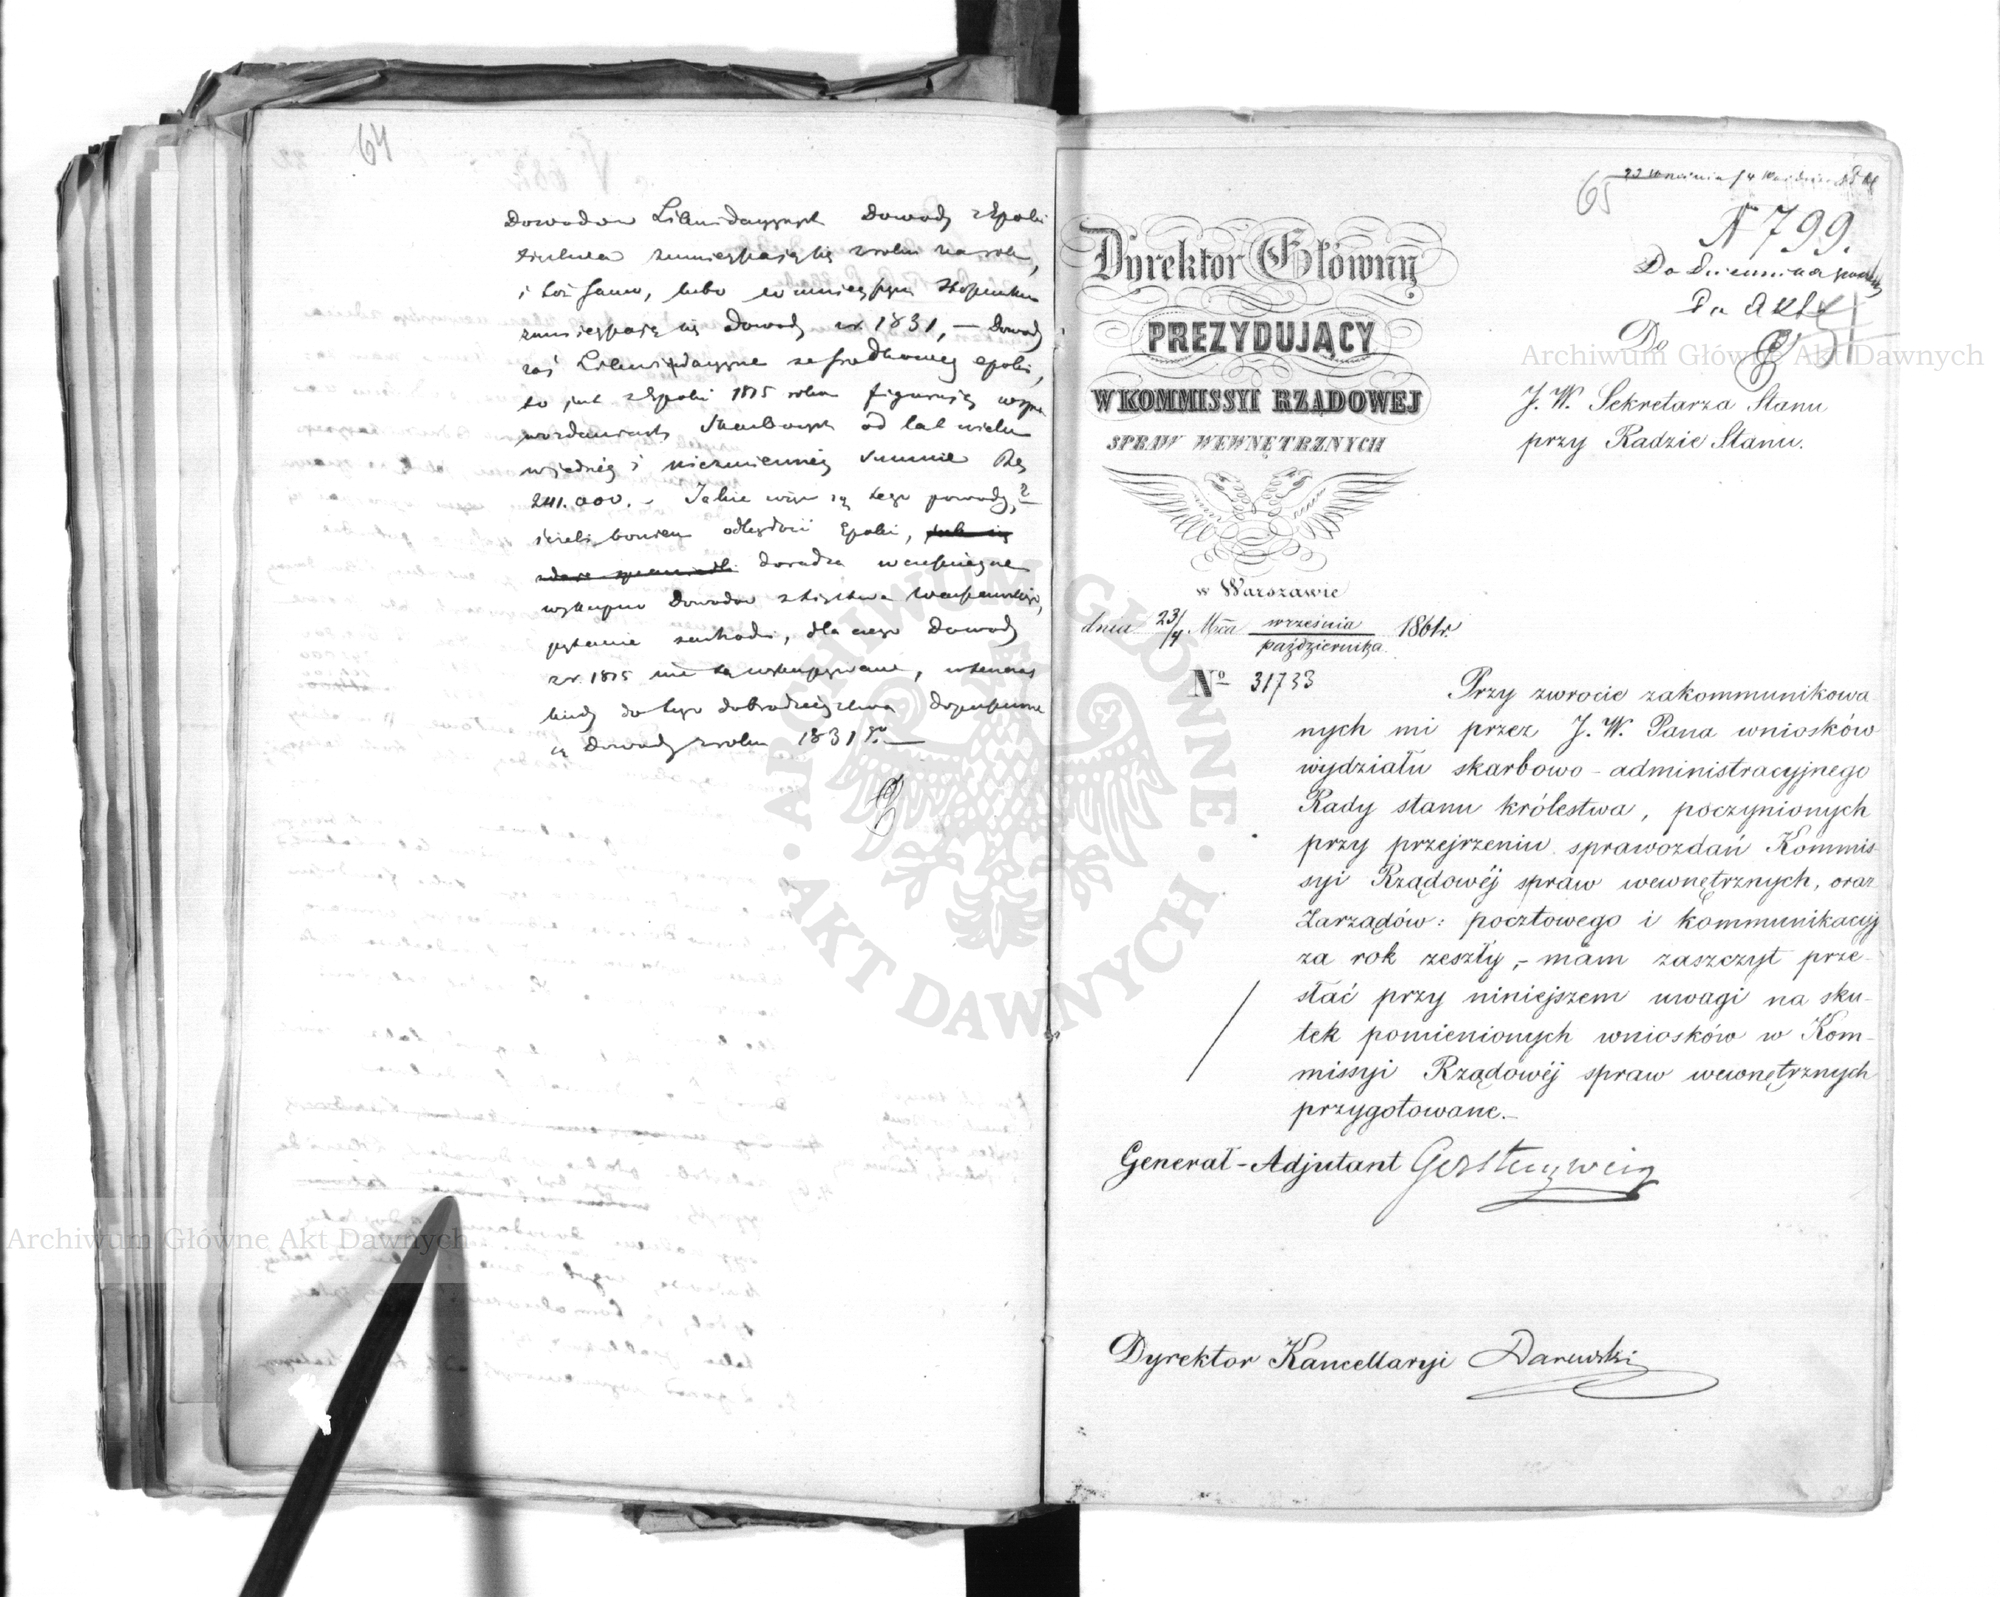 64
Dowodow Likwidacyjnych Dowody z Epoki
zmnieyszaią się z roku na rok,
i toż samo, lubo w mnieyszym stopniu
zmnieyszaią się Dowody z r. 1831, — Dowody
zaś Likwidacyjne ze środkowey epoki,
to jest z Epoki 1815 roku figurują w spra
wozdaniach Skarbowych od lat wielu
w jednéy i niezmiennéy summie Rsr
241.000. – Jakie więc są tego powody,?
jeżeli bowiem odległość Epoki,
doradza
wykupno Dowodów z Xięstwa Warszawskiego,
pytanie zachodzi, dla czego Dowody
z r. 1815 nie są wykupywane, wtenczas
kiedy do tego dobrodzieystwa dopuszczone
są Dowody z roku 1831 go. —
65
23 Września / 4 Paźdz
N 799.
Do Dziennika
Do Akt
Dyrektor Główny
PREZYDUJĄCY
W KOMMISSYI RZĄDOWEJ
SPRAW WEWNĘTRZNYCH
Do
J. W. Sekretarza Stanu
przy Radzie Stanu.
w Warszawie
dnia 23/4 Mca września/października 1861 r.
No 31733
Przy zwrocie zakommunikowa
nych mi przez J. W. Pana wniosków
wydziału skarbowo-administracyjnego
Rady stanu królestwa, poczynionych
przy przejrzeniu sprawozdań Kommis-
syi Rządowéj spraw wewnętrznych, oraz
Zarządów: pocztowego i kommunikacyj
za rok zeszły, – mam zaszczyt prze-
słać przy niniejszem uwagi na sku-
tek pomienionych wniosków w Kom-
missyi Rządowéj spraw wewnętrznych
przygotowane. –
Generał-Adjutant Gerstenzweig
Dyrektor Kancellaryi Darewski
Archiwum Główne Akt Dawnych
Archiwum Główne Akt Dawnych
ARCHIWUM GŁÓWNE · AKT DAWNYCH ·